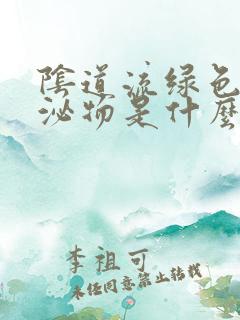 陰道流綠色
泌物是什麽
李祖可
未经同意禁止转载